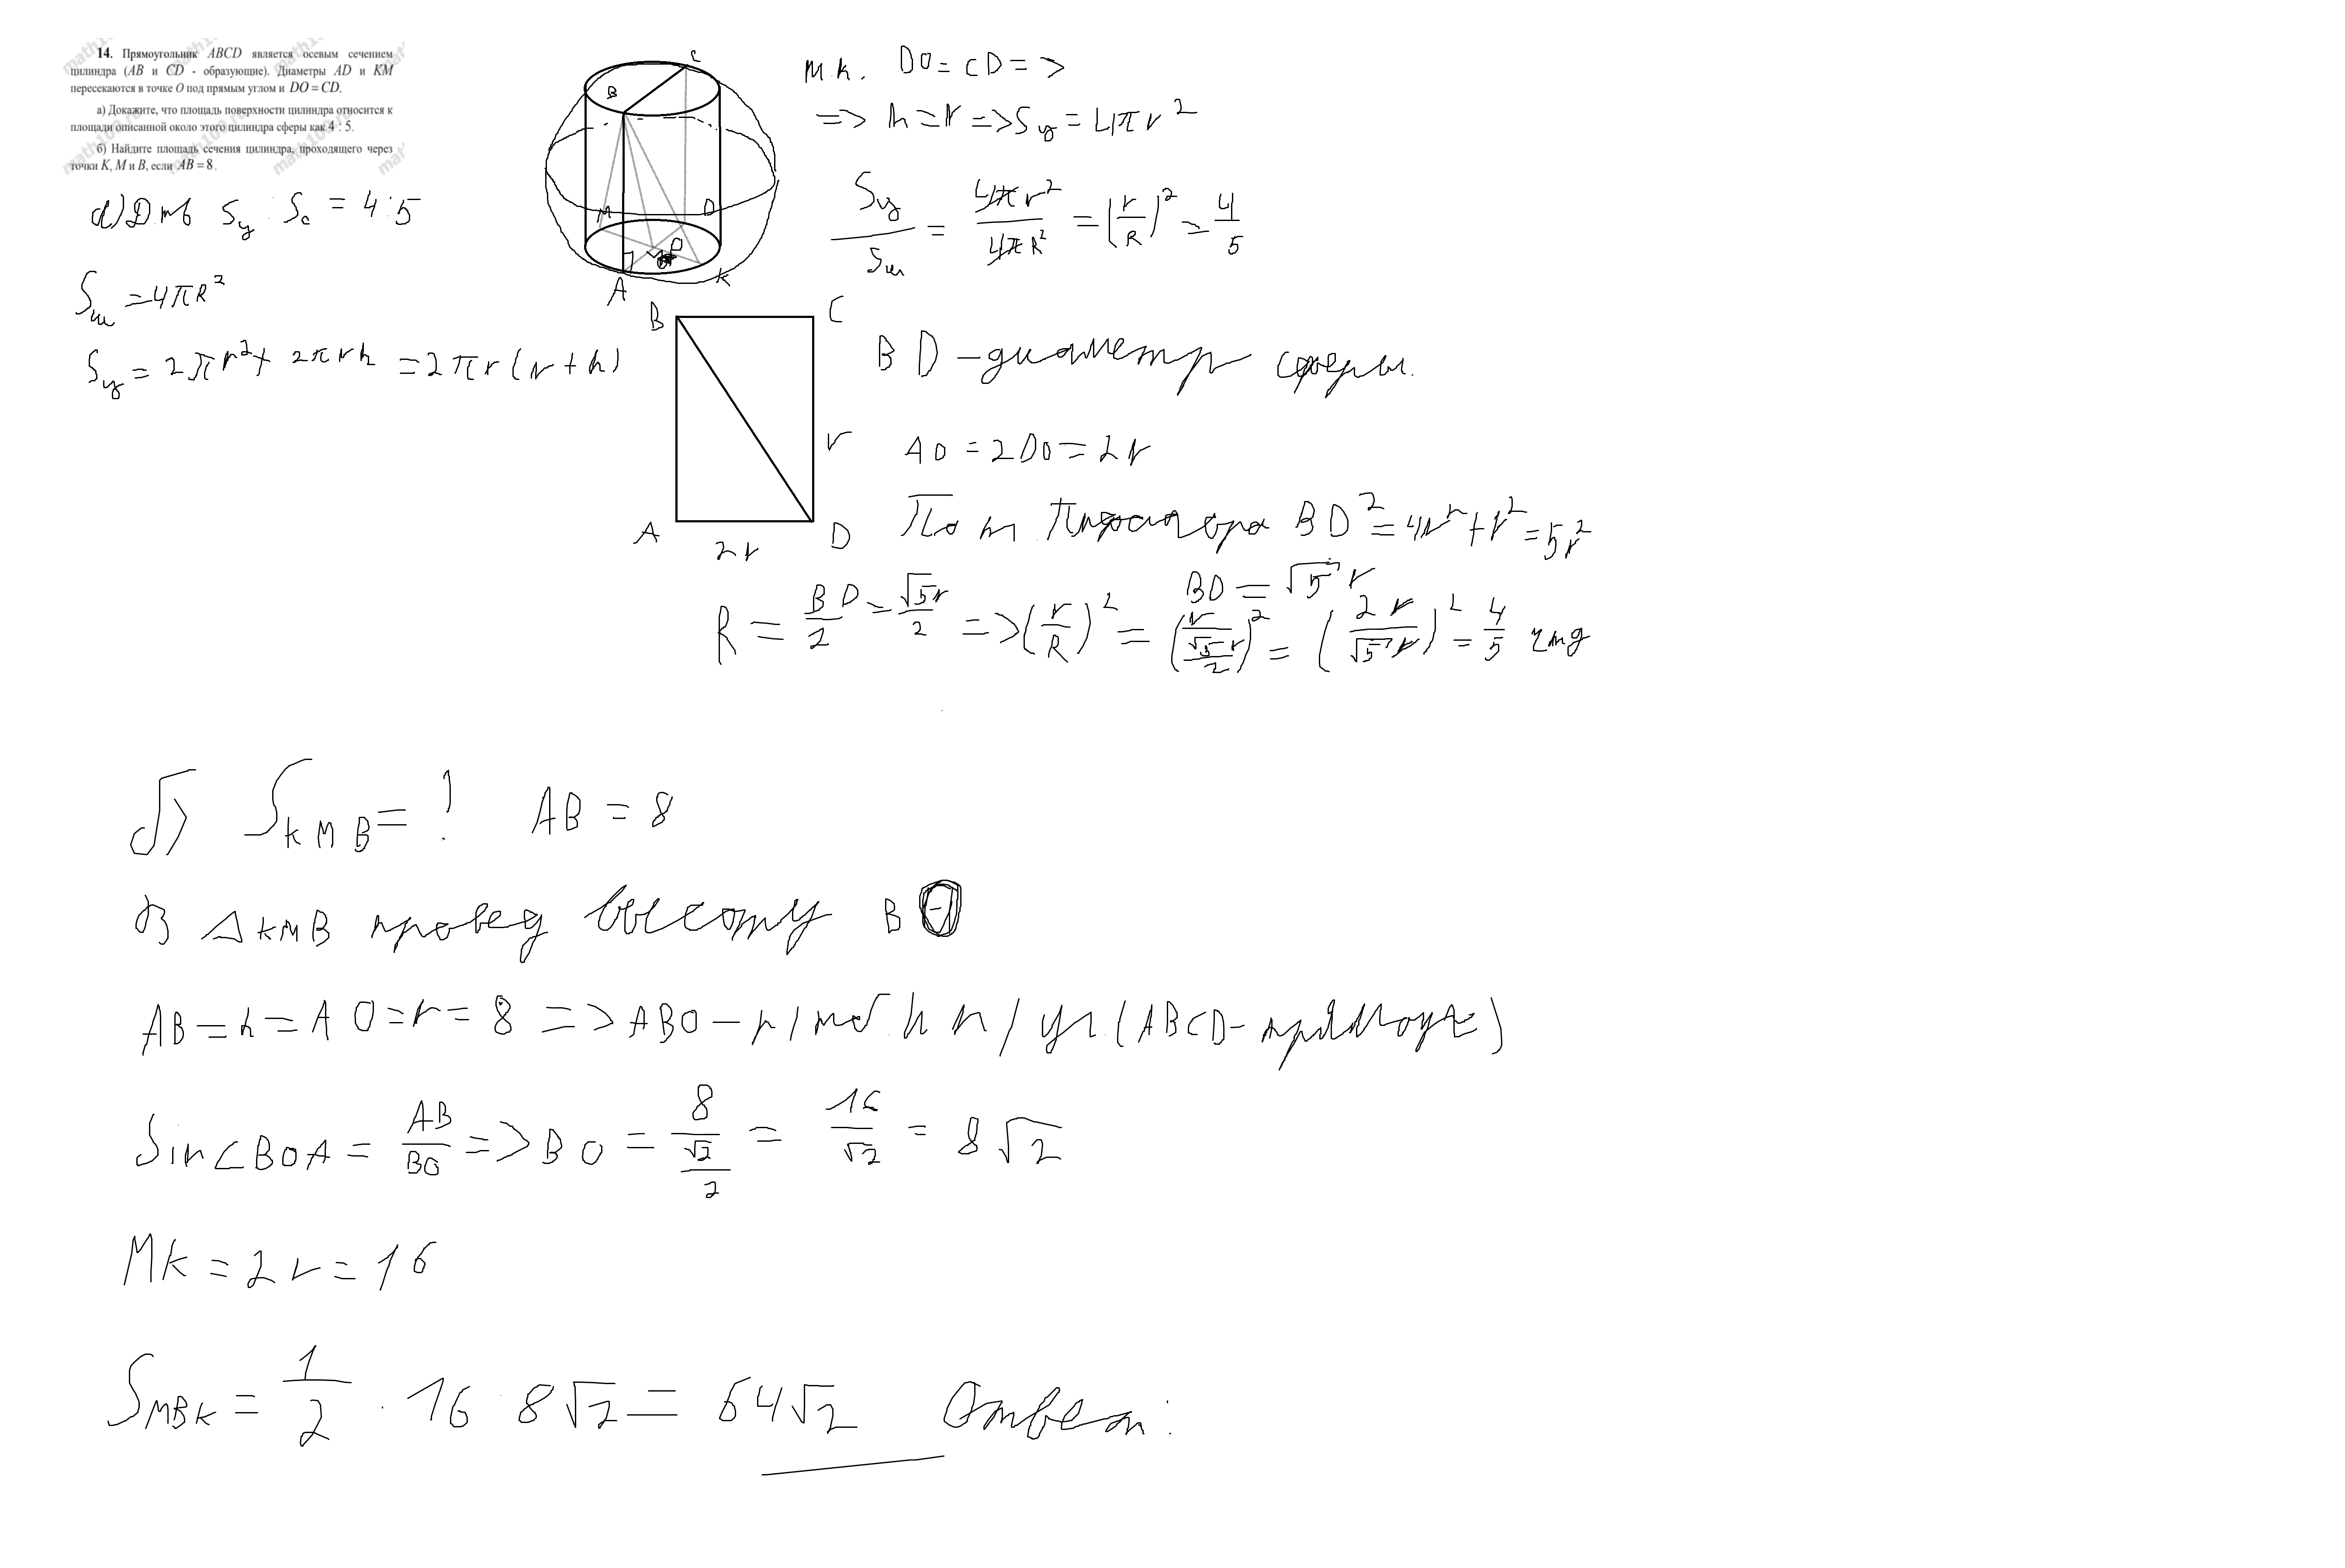 14. Прямоугольник ABCD является осевым сечением
цилиндра (AB и CD - образующие). Диаметры AD и KM
пересекаются в точке O под прямым углом и DO = CD.
а) Докажите, что площадь поверхности цилиндра относится к
площади описанной около этого цилиндра сферы как 4 : 5.
б) Найдите площадь сечения цилиндра, проходящего через
точки K, M и B, если AB = 8.
а) Д-ть Sц : Sс = 4:5
Sш = 4πR²
Sц = 2πr² + 2πrh = 2πr(r+h)
C
B
M
D
O
A
K
т.к. DO = CD =>
=> h = r => Sц = 4πr²
Sц/Sш = 4πr²/4πR² = (r/R)² = 4/5
B
C
r
A
2r
D
BD - диаметр сферы.
AD = 2DO = 2r
По т Пифагора BD² = 4r² + r² = 5r²
BD = √5 r
R = BD/2 = √5r/2 => (r/R)² = (r/(√5 r/2))² = (2r/√5 r)² = 4/5 чтд
б) SKMB = ? AB = 8
В ΔKMB провед высоту BO
AB = h = AO = r = 8 => ABO - р/ноб и п/уг (ABCD - прямоуг)
Sin∠BOA = AB/BO => BO = 8/(√2/2) = 16/√2 = 8√2
MK = 2r = 16
SMBK = 1/2 · 16 · 8√2 = 64√2 Ответ:
math100.ru